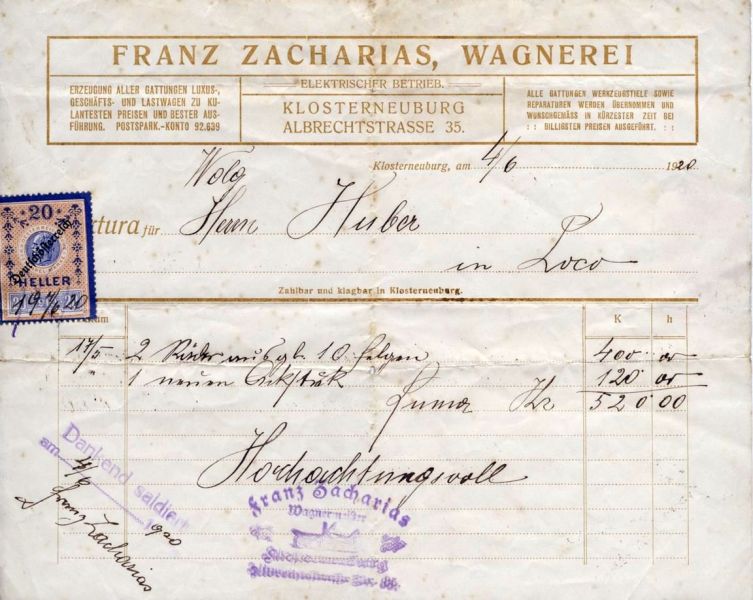 FRANZ ZACHARIAS, WAGNEREI
ERZEUGUNG ALLER GATTUNGEN LUXUS-,
GESCHÄFTS- UND LASTWAGEN ZU KU-
LANTESTEN PREISEN UND BESTER AUS-
FÜHRUNG. POSTSPARK.-KONTO 92.639
ELEKTRISCHER BETRIEB.
KLOSTERNEUBURG
ALBRECHTSTRASSE 35.
ALLE GATTUNGEN WERKZEUGSTIELE SOWIE
REPARATUREN WERDEN ÜBERNOMMEN UND
WUNSCHGEMÄSS IN KÜRZESTER ZEIT BEI
: : BILLIGSTEN PREISEN AUSGEFÜHRT. : :
Klosterneuburg, am 4/6 1920
Wolg
ktura für Herrn Huber
in Loco
20
Deutschösterreich
HELLER
19 4/6 20
Zahlbar und klagbar in Klosterneuburg.
tum K h
17/5 2 Räder ausgbl. 10 Felgen 400 00
" 1 neuen 120 00
Suma Kr 520 00
Hochachtungsvoll
Dankend saldiert
am 4/6 1920
Franz Zacharias
Franz Zacharias
Wagnermeister
Klosterneuburg
Albrechtstraße Nr. 35.